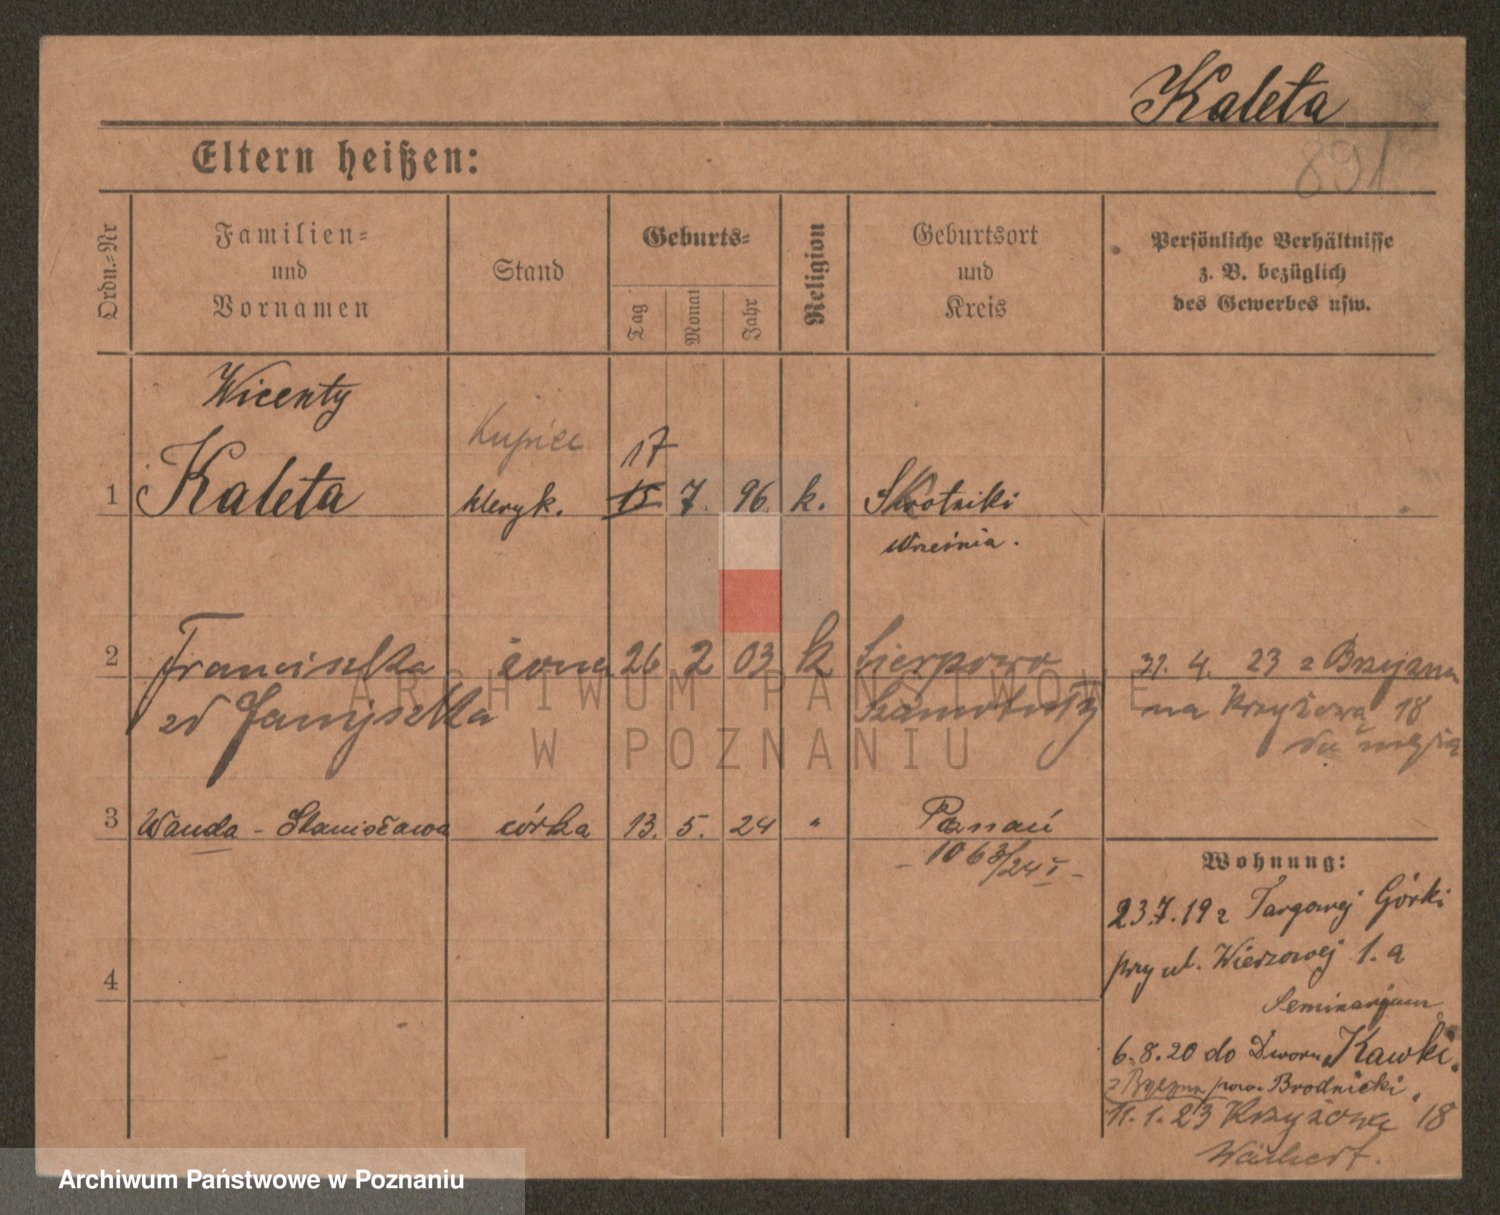 Kaleta
891
Eltern heißen:
Ordn.-Nr
Familien-
und
Vornamen
Stand
Geburts-
Tag
Monat
Jahr
Religion
Geburtsort
und
Kreis
Persönliche Verhältnisse
z. B. bezüglich
des Gewerbes usw.
Wicenty
Kupiec
17
1 Kaleta kleryk. 15 7. 96. k. Skotniki
Września.
2 Franciszka żona 26 2 03 k 4. 23 z
zd Szamotuły na Krzyżową 18
3 Wanda - Stanisława córka 13. 5. 24 " Poznań
- 1063/24 I -
Wohnung:
23.7.19 z Targowej Górki
przy ul. Wieżowej 1.a
Seminarjum
4
6.8.20 do Dworu Kawki.
pow. Brodnicki.
11.1.23 Krzyżowa 18
ARCHIWUM PAŃSTWOWE
W POZNANIU
Archiwum Państwowe w Poznaniu